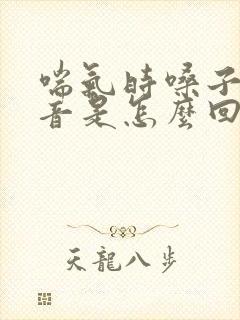 喘氣時嗓子
音是怎麼回
天龍八步